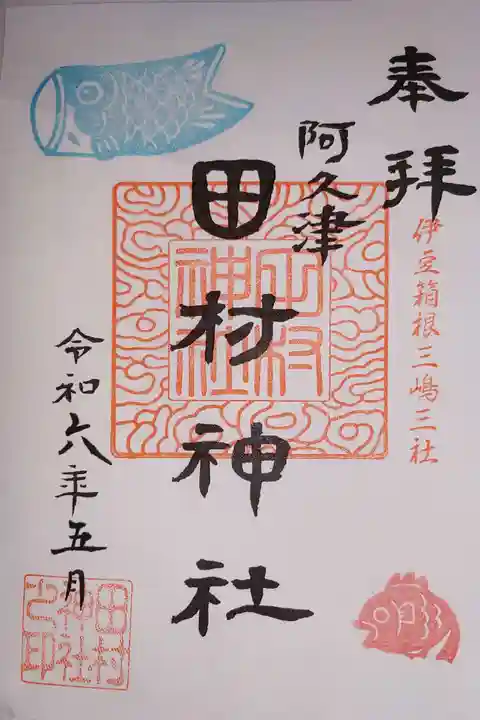 奉拝
伊豆箱根三嶋三社
阿久津
田村神社
田村神社
令和六年五月
田村
神社
之印